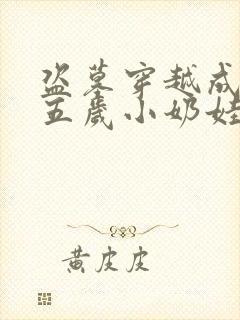 盗墓穿越成
五岁小奶娃
黄皮皮